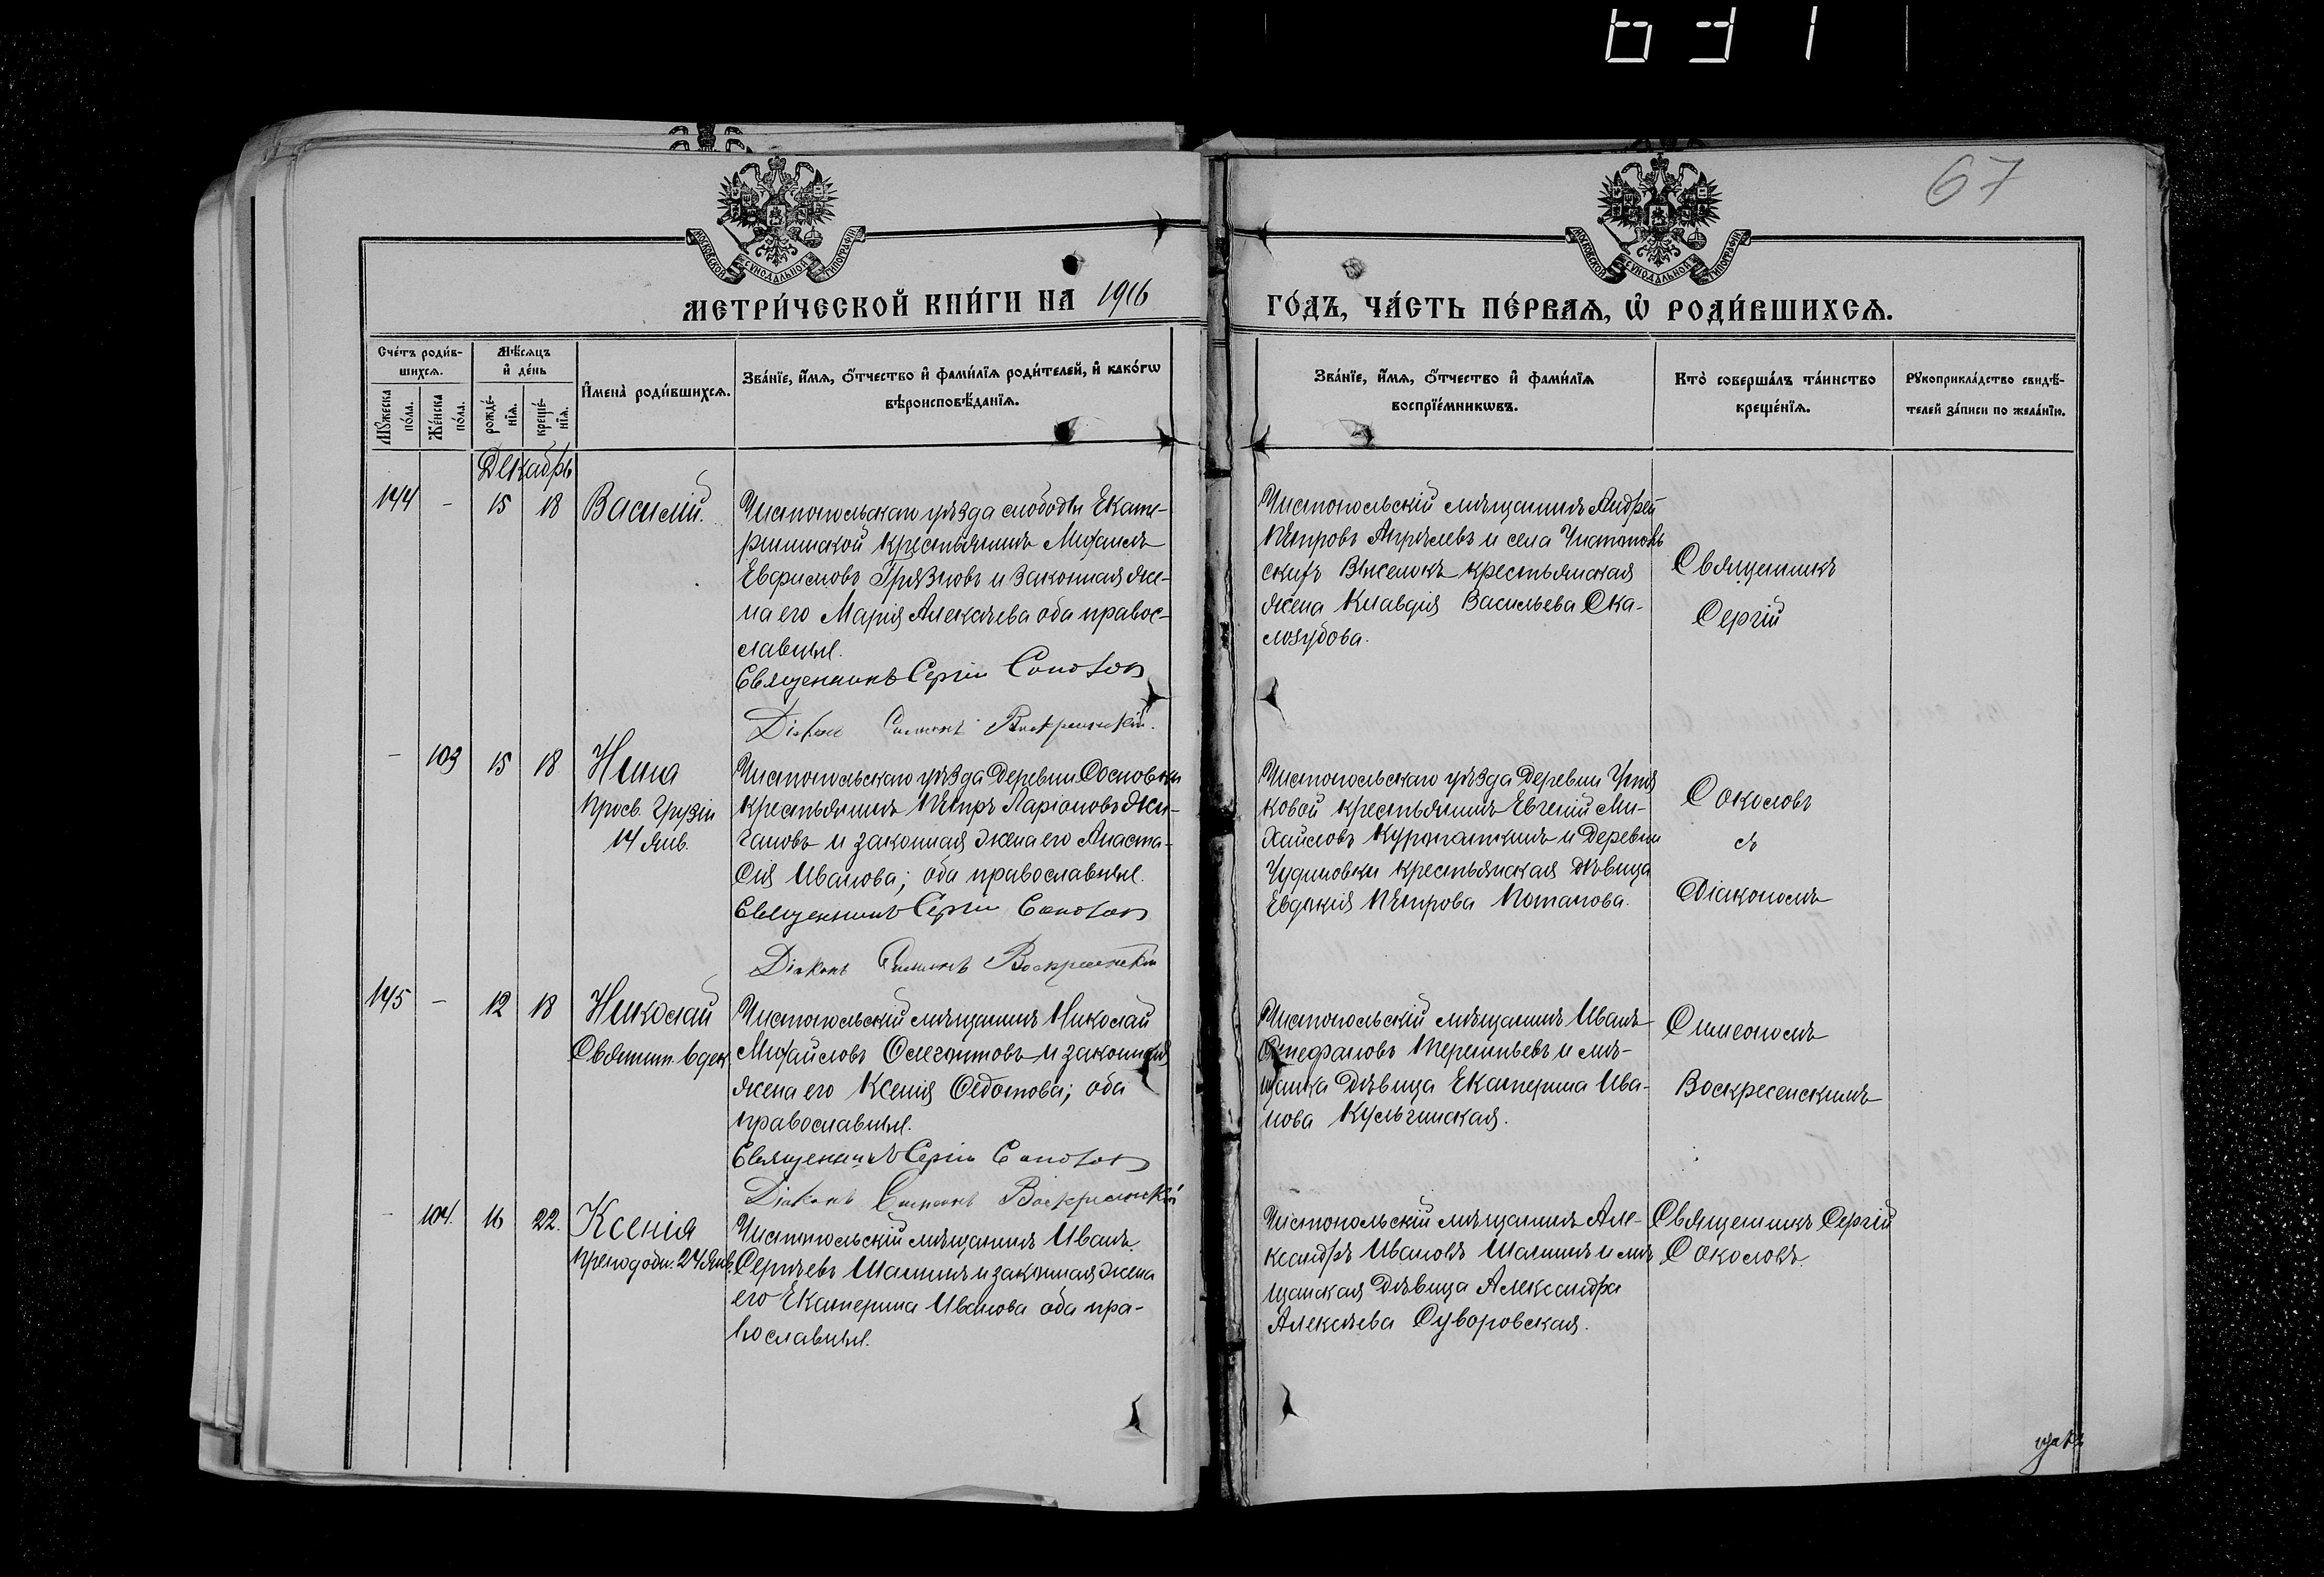 67
МОСКОВСКОЙ СѴНОДАЛЬНОЙ ТИПОГРАФІИ
МОСКОВСКОЙ СѴНОДАЛЬНОЙ ТИПОГРАФІИ
МЕТРИ́ЧЕСКОЙ КНИ́ГИ НА 1916
ГО́ДЪ, ЧА́СТЬ ПЕ́РВАѦ, Ѡ҆ РОДИ́ВШИХСѦ.
Сче́тъ роди́в-
шихсѧ.
Мѣ́сѧцъ
и҆ де́нь
Мꙋ́жеска
по́ла.
Же́нска
по́ла.
рожде́-
нїѧ.
креще́-
нїѧ.
И҆мена̀ роди́вшихсѧ.
Зва́нїе, и҆́мѧ, ѻ҆́тчество и҆ фами́лїѧ роди́телей, и҆ како́гѡ
вѣроисповѣ́данїѧ.
Зва́нїе, и҆́мѧ, ѻ҆́тчество и҆ фами́лїѧ
воспрїе́мникѡвъ.
Кто̀ соверша́лъ та́инство
креще́нїѧ.
Рꙋкоприкла́дство свидѣ́-
телей за́писи по жела́нїю.
Декабрь
144 - 15 18 Василій.
Чистопольскаго уѣзда слободы Екате-
рининской крестьянинъ Михаилъ
Евфимовъ Грязновъ и законная же-
на его Марія Алексѣева оба правос-
лавные.
Священникъ Сергій Соколов
Діаконъ Симеонъ Воскресенскій.
Чистопольскій мѣщанинъ Андрей
Петровъ Апрѣлевъ и села Чистополь
скихъ Выселокъ крестьянская
жена Клавдія Васильева Ска-
лозубова.
Священникъ
Сергій
- 103 15 18 Нина
просв. Грузіи
14 янв.
Чистопольскаго уѣзда деревни Сосновки
крестьянинъ Петръ Ларіоновъ Жи-
гановъ и законная жена его Анаста-
сія Иванова; оба православные.
Священникъ Сергій Соколов
Діаконъ Симеонъ Воскресенскій
Чистопольскаго уѣзда деревни
ковой крестьянинъ Евгеній Ми-
хайловъ Куропаткинъ и деревни
Чудиновки крестьянская дѣвица
Евдокія Петрова Потапова.
Соколовъ
съ
Діакономъ
145 - 12 18 Николай
Святит. 6 дек.
Чистопольскій мѣщанинъ Николай
Михайловъ и законная
жена его Ксенія Федотова; оба
православные.
Священникъ Сергій Соколов
Діаконъ Симеонъ Воскресенскій
Чистопольскій мѣщанинъ Иванъ
Стефановъ Терентьевъ и мѣ-
щанка дѣвица Екатерина Ива-
нова Кульгинская.
Симеономъ
Воскресенскимъ
- 104. 16 22. Ксенія
преподобн. 24 янв.
Чистопольскій мѣщанинъ Иванъ
Сергѣевъ Шалинъ и законная жена
его Екатерина Иванова оба пра-
вославные.
Чистопольскій мѣщанинъ Але-
ксандръ Ивановъ Шалинъ и мѣ
щанская дѣвица Александра
Алексѣева Суворовская.
Священникъ Сергій
Соколовъ.